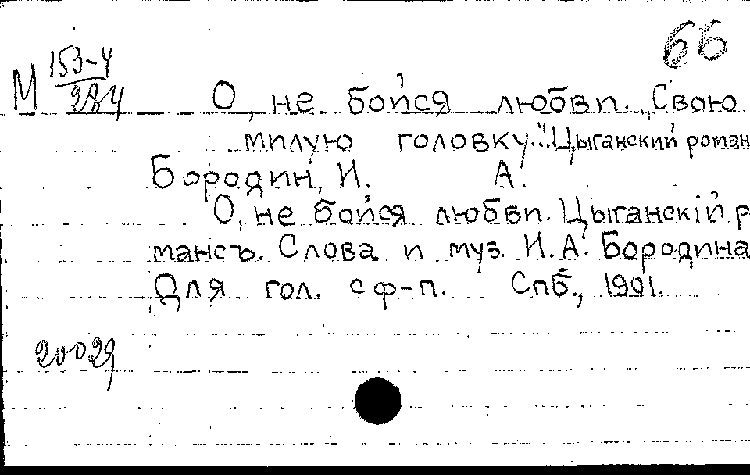 66
М 153-4/284
О, не бойся любви. „Свою
милую головку..." Цыганский роман
Бородин, И. А.
О, не бойся любви. Цыганскій р
мансъ. Слова и муз. И.А. Бородина
Для гол. с ф-п. Спб., 1901.
20029